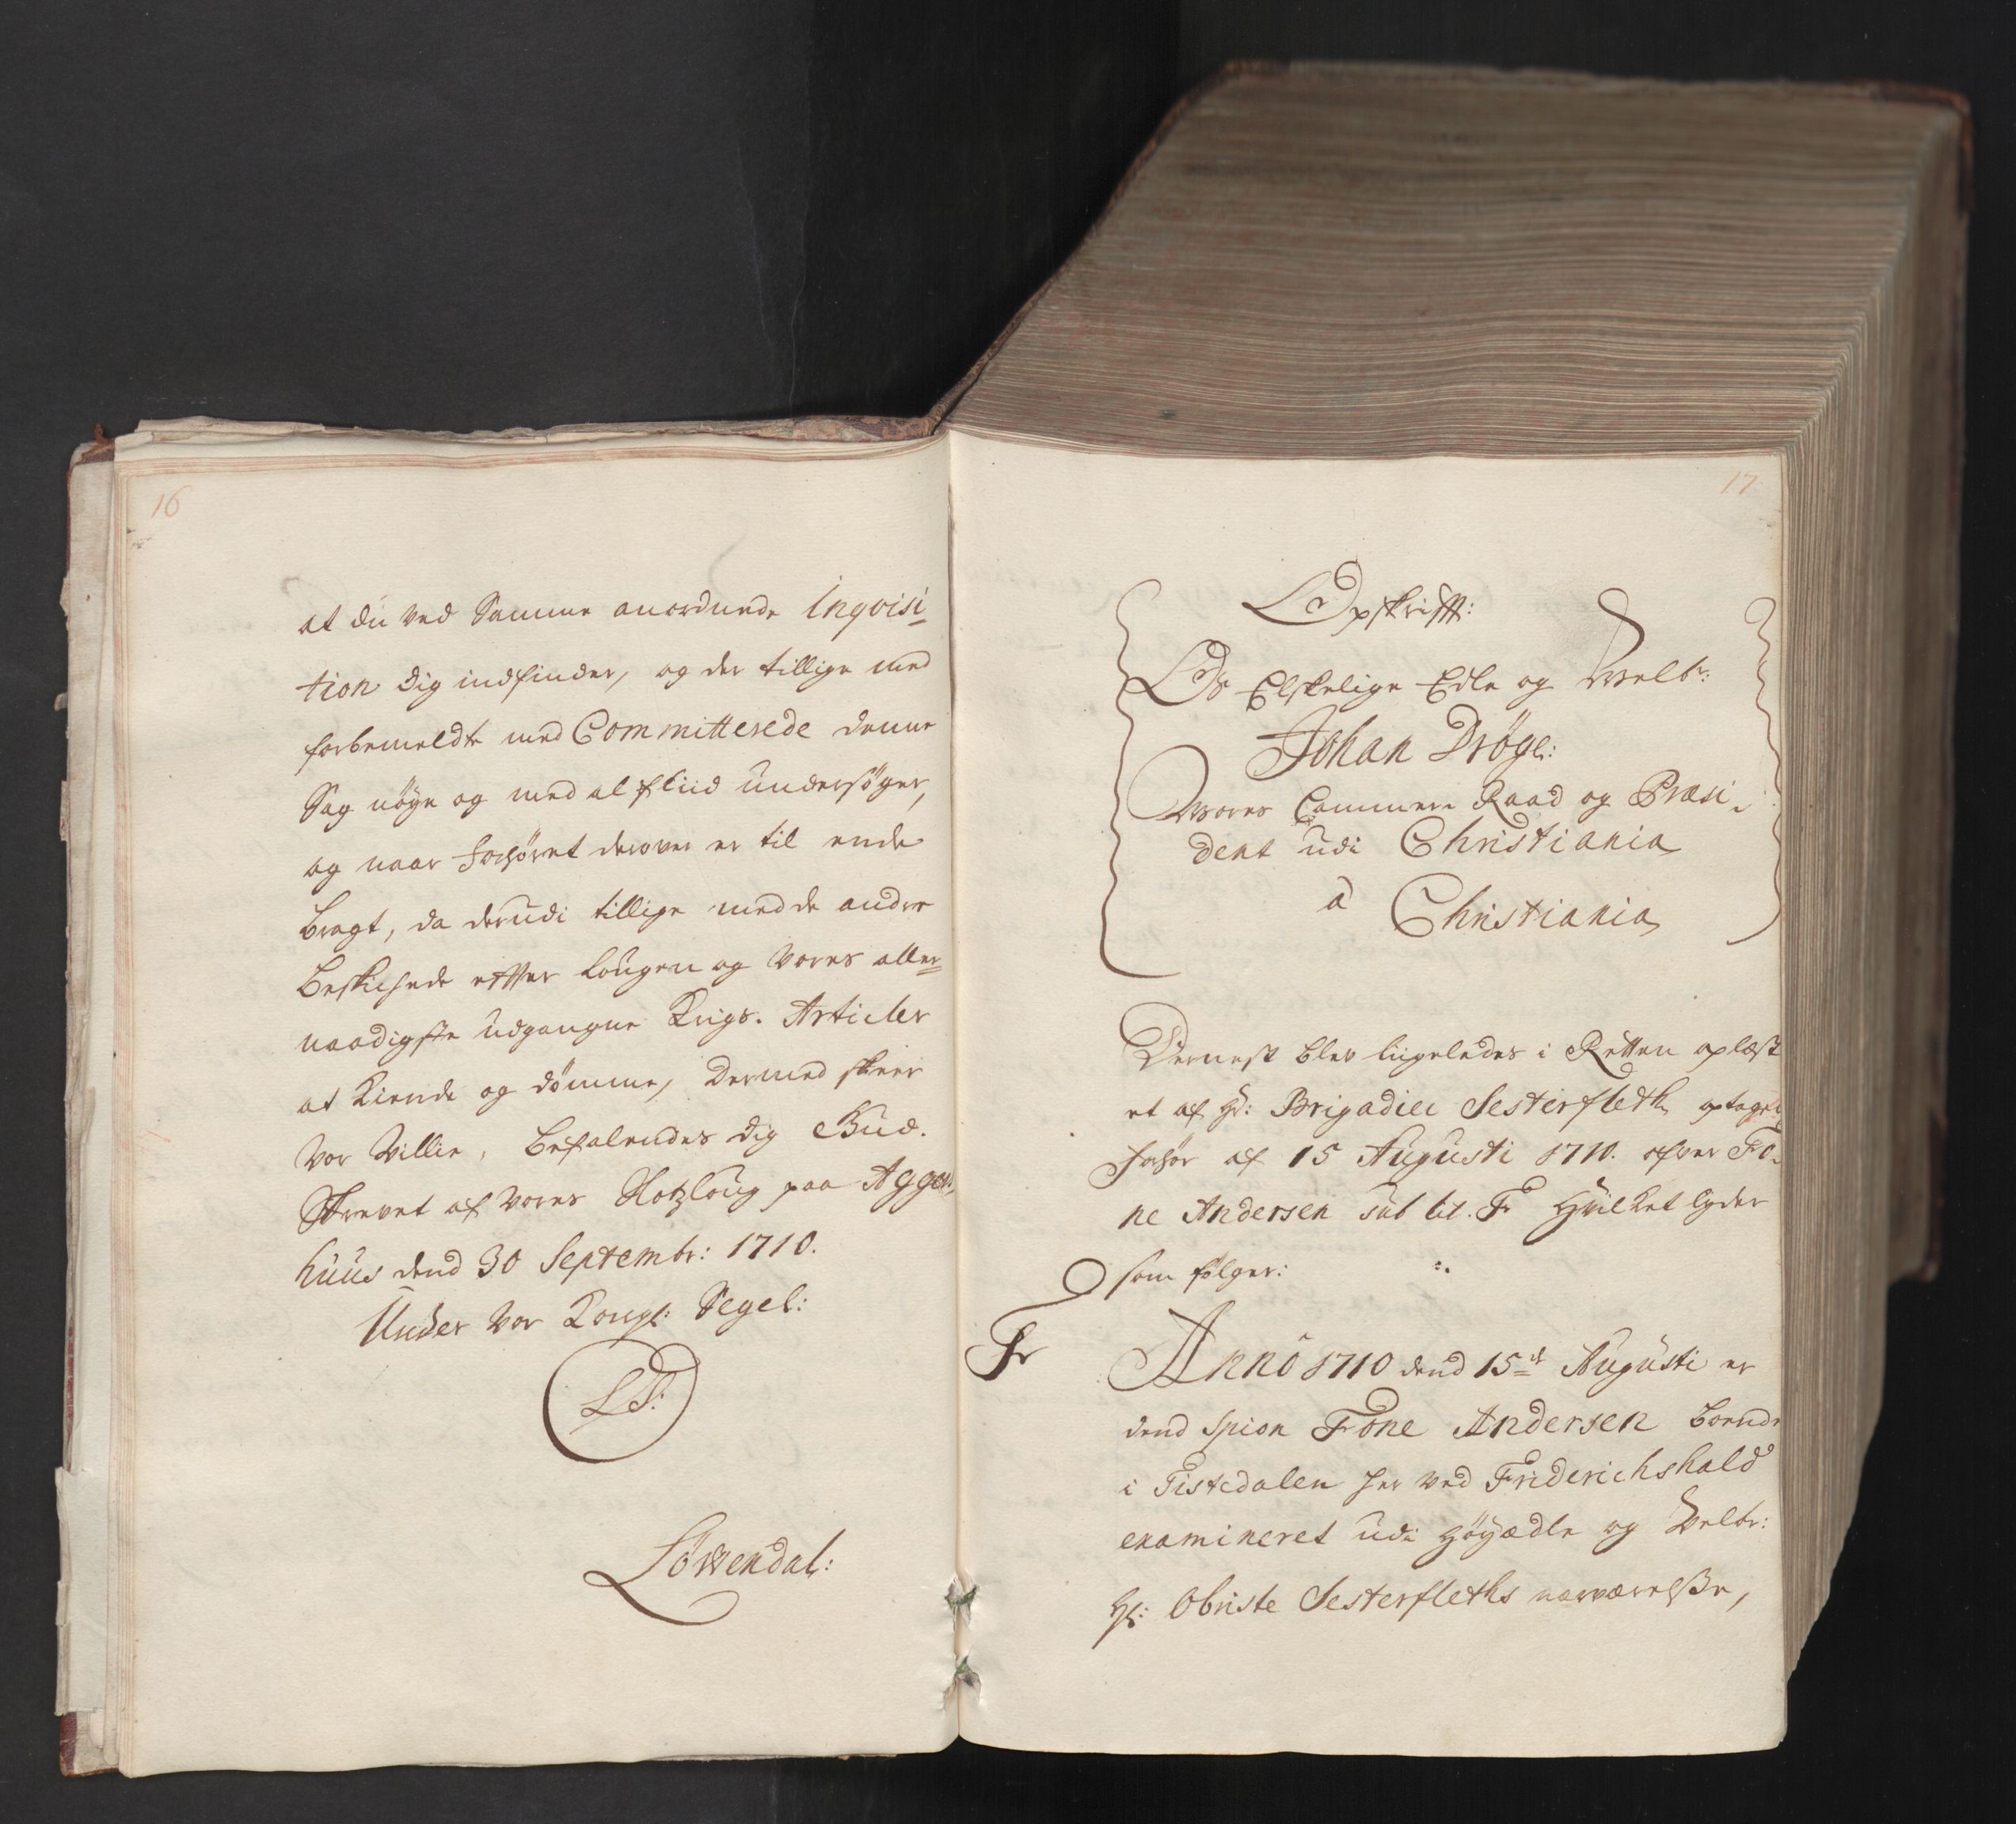 16
at du ved Samme anordnede Inqvisi-
tion dig indfinder, og der tillige med
forbemeldte med Committerede denne
Sag nøye og med al fliid undersøger,
og naar Forhøret derover er til ende
bragt, da derudi tillige med de andre
Beskichede efter Lougen og Vores aller-
naadigste udgangne Krigs. Articler
at Kiende og dømme, dermed skeer
Vor Villie, Befalendes dig Gud.
Skrevet af Vores Slotzloug paa Agger-
huus dend 30 Septembr: 1710.
Under Vor Kongl: Segel:
LS:
Løwendal:
17
Opskrifft:
Os Elskelige Edle og Welbr:
Johan Drøge:
Wores Cammer Raad og Præsi-
dent udi Christiania
a
Christiania
Dernest blev ligeledes i Retten oplæst
et af Hr: Brigadier Sesterfleth optaget
Forhør af 15 Augusti 1710. ofver To-
ne Andersen sub lit. F Hvilket lyder
som følger:
F
Anno 1710 dend 15de Augusti er
dend Spion Tone Andersen boende
i Tistedalen her ved Friderichshald
examineret udi Høyædle og Velbr:
Hr: Obriste Sesterfleths nærværelse,